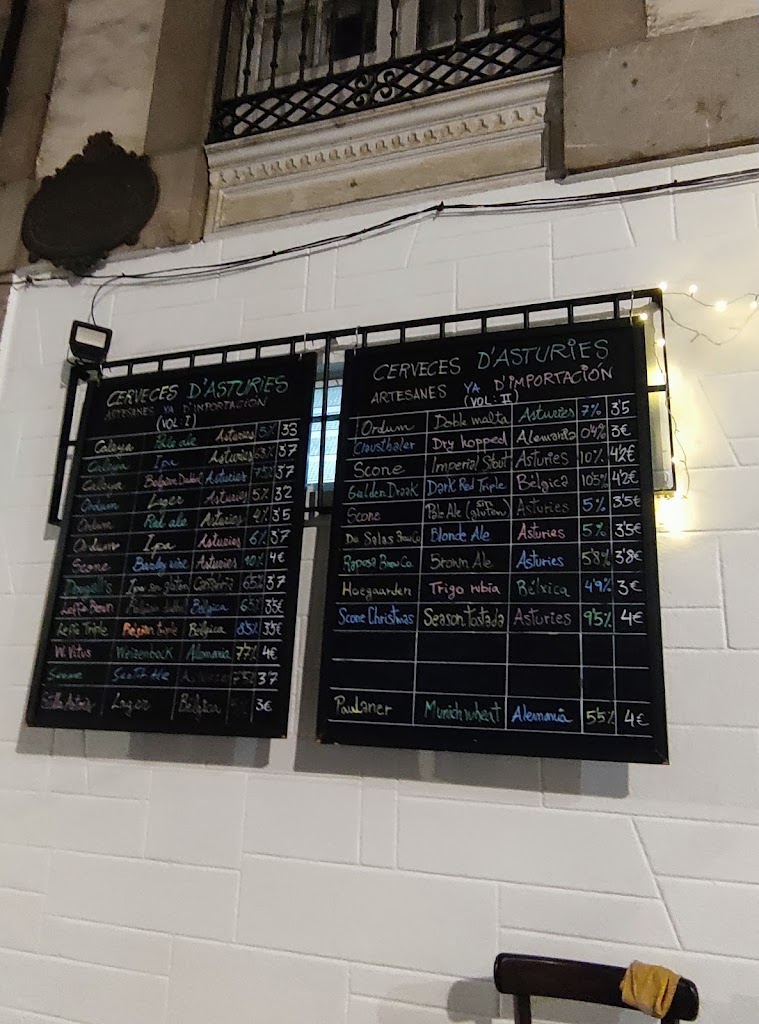 CERVECES D'ASTURIES
ARTESANES YA D'IMPORTACIÓN
(VOL: I)
Caleya Pale ale Asturies 5% 3'3
Caleya Ipa Asturies 3'7
Caleya Belgian Dubbel Asturies 7'5% 3'7
Ordum Lager Asturies 5% 3'2
Ordum Red ale Asturies 4% 3'5
Ordum Ipa Asturies 6% 3'7
Scone Barley wine Asturies 10% 4€
Dougall's Ipa sin gluten Cantabria 6'5% 3'7
Leffe Brown Belgian dubbel Bélgica 3'5€
Leffe Triple Belgian triple Bélgica 8'5% 3'5€
W. Vitus Weizenbock Allemania 7'7% 4€
Scone Scotch Ale 7'5% 3'7
Stella Artois Lager Bélgica 3€
CERVECES D'ASTURIES
ARTESANES YA D'IMPORTACIÓN
(VOL: II)
Ordum Doble malta Asturies 7% 3'5
Clausthaler Dry hopped Alemania 0'4% 3€
Scone Imperial Stout Asturies 10% 4'2€
Gulden Draak Dark Red Triple Bélgica 10'5% 4'2€
Scone Pale Ale (sin gluten) Asturies 5% 3'5€
Du Salas Brew Co Blonde Ale Asturies 5% 3'5€
Raposa Brew Co. Brown Ale Asturies 5'8% 3'8€
Hoegaarden Trigo rubia Bélxica 4'9% 3€
Scone Christmas Season Tostada Asturies 9'5% 4€
Paulaner Munich wheat Alemania 5'5% 4€